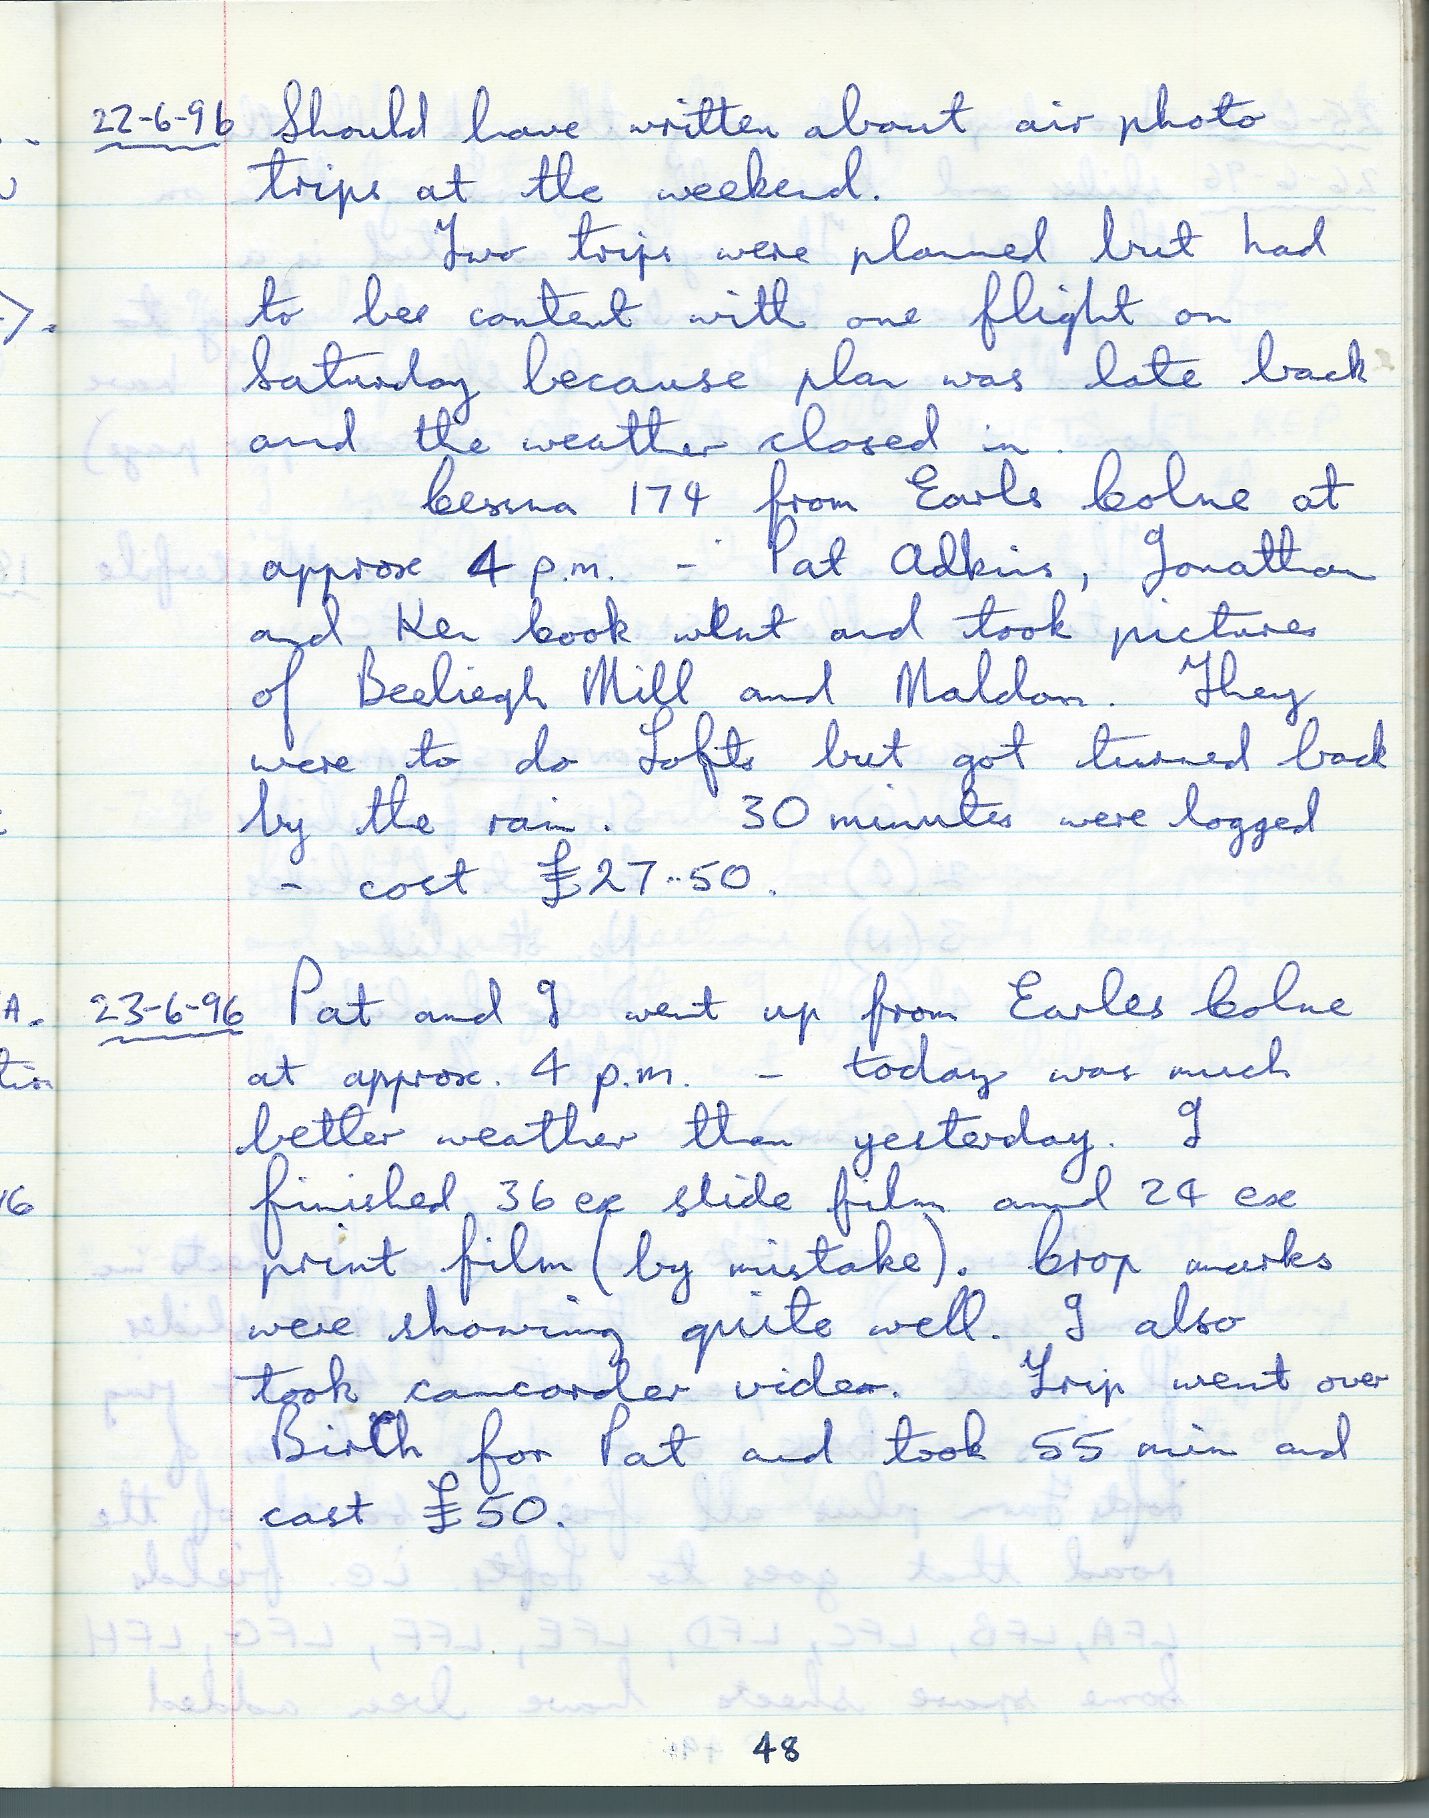 22-6-96 Should have written about air photo
trips at the weekend.
Two trips were planned but had
to bee content with one flight on
Saturday because plan was late back
and the weather closed in.
Cessna 174 from Earls Colne at
approx 4 p.m. - Pat Adkins, Jonathan
and Ken Cook went and took pictures
of Beeliegh Mill and Maldon. They
were to do Lofts but got turned back
by the rain. 30 minutes were logged
- cost £27-50.
23-6-96 Pat and I went up from Earles Colne
at approx. 4 p.m. - today was much
better weather than yesterday. I
finished 36 ex slide film and 24 ex
print film (by mistake). Crop marks
were showing quite well. I also
took camcorder video. Trip went over
Birch for Pat and took 55 min and
cost £50.
48